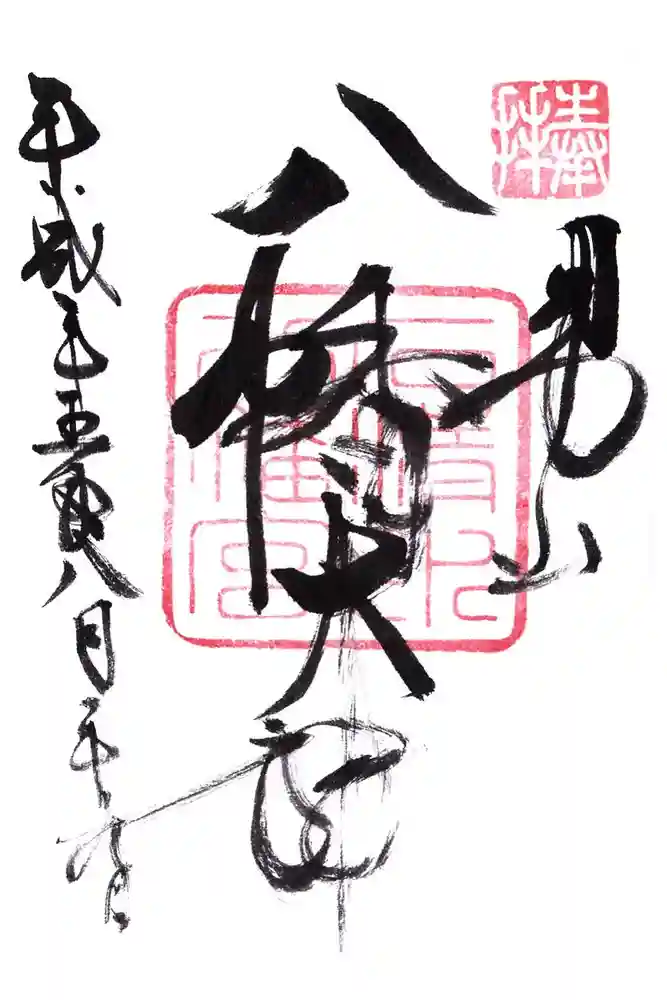 奉拝
男山
八幡大神
石清水
八幡宮
平成二十五年八月二十九日